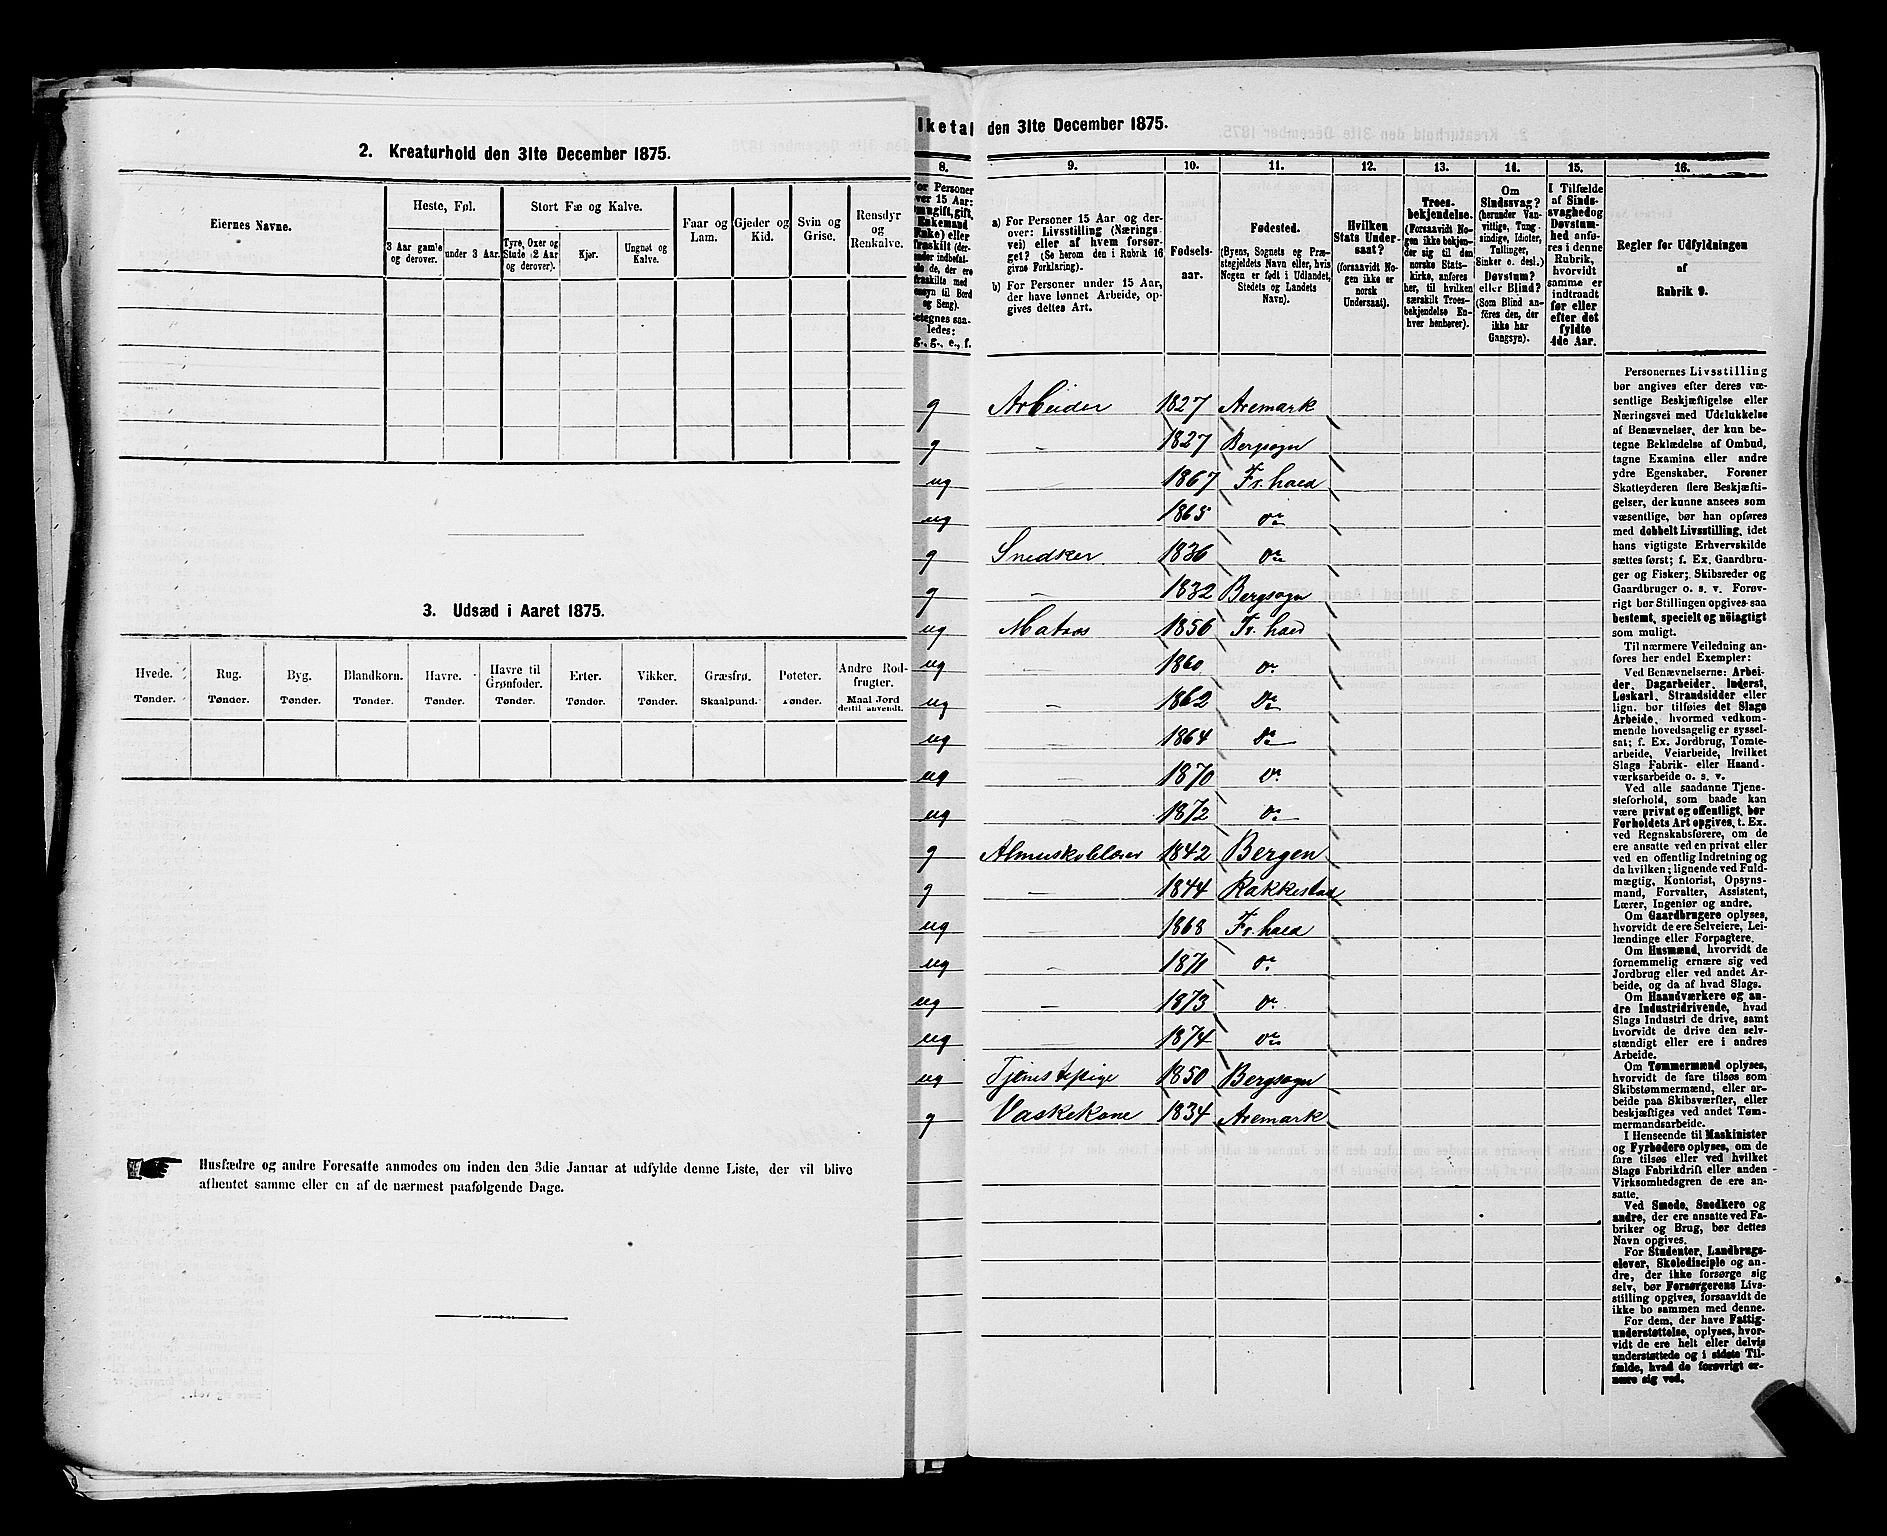 2. Kreaturhold den 31te December 1875.
Eiernes Navne.
Heste, Føl.
3 Aar gamle og derover.
under 3 Aar.
Stort Fæ og Kalve.
Tyre, Oxer og Stude (2 Aar og derover).
Kjør.
Ungnøt og Kalve.
Faar og Lam.
Gjeder og Kid.
Svin og Grise.
Rensdyr og Renkalve.
3. Udsæd i Aaret 1875.
Hvede. Rug. Byg. Blandkorn. Havre. Havre til Grønfoder. Erter. Vikker. Græsfrø. Poteter. Andre Rodfrugter.
Tønder. Tønder. Tønder. Tønder. Tønder. Tønder. Tønder. Tønder. Skaalpund. Tønder. Maal Jord dertil anvendt.
Husfædre og andre Foresatte anmodes om inden den 3die Januar at udfylde denne Liste, der vil blive
afhentet samme eller en af de nærmest paafølgende Dage.
lketal den 31te December 1875.
8. 9. 10. 11. 12. 13. 14. 15. 16.
a) For Personer 15 Aar og der-
over: Livsstilling (Nærings-
vei) eller af hvem forsør-
get? (Se herom den i Rubrik 16
givne Forklaring).
b) For Personer under 15 Aar,
der have lønnet Arbeide, op-
gives dettes Art.
Fødsels-
aar.
Fødested.
(Byens, Sognets og Præ-
stegjeldets Navn eller, hvis
Nogen er født i Udlandet,
Stedets og Landets
Navn).
Hvilken
Stats Under-
saat?
(forsaavidt No-
gen ikke er
norsk
Undersaat).
Troes-
bekjendelse.
(Forsaavidt No-
gen ikke bekjen-
der sig til den
norske Stats-
kirke, anføres
her, til hvilken
særskilt Troes-
bekjendelse En-
hver henhører).
Om
Sindssvag?
(herunder Van-
vittige, Tung-
sindige, Idioter,
Tullinger,
Sinker o. desl.)
Døvstum?
eller Blind?
(Som Blind an-
føres den, der
ikke har
Gangsyn).
I Tilfælde
af Sinds-
svaghed og
Døvstum-
hed anfø-
res i denne
Rubrik,
hvorvidt
samme er
indtraadt
før eller
efter det
fyldte
4de Aar.
Regler for Udfyldningen
af
Rubrik 9.
g Arbeider 1827 Aremark
g — 1827 Bergsogn
ug — 1867 Fr.hald
ug 1865 Do
g Snedker 1836 Do
g — 1832 Bergsogn
ug Matros 1856 Fr. hald
ug — 1860 Do
ug — 1862 Do
ug — 1864 Do
ug — 1870 Do
ug — 1872 Do
g 1842 Bergen
g — 1844 Rakkestad
ug — 1868 Fr.hald
ug — 1871 Do
ug — 1873 Do
ug — 1874 Do
ug Tjenestepige 1850 Bergsogn
g Vaskekone 1834 Aremark
Personernes Livsstilling
bør angives efter deres væ-
sentlige Beskjæftigelse eller
Næringsvei med Udelukkelse
af Benævnelser, der kun be-
tegne Beklædelse af Ombud,
tagne Examina eller andre
ydre Egenskaber. Forener
Skatteyderen flere Beskjæfti-
gelser, der kunne ansees som
væsentlige, bør han opføres
med dobbelt Livsstilling, idet
hans vigtigste Erhvervskilde
sættes først; f. Ex. Gaardbru-
ger og Fisker; Skibsreder og
Gaardbruger o. s. v. Forøv-
rigt bør Stillingen opgives saa
bestemt, specielt og nöiagtigt
som muligt.
Til nærmere Veiledning an-
føres her endel Exempler:
Ved Benævnelserne: Arbei-
der, Dagarbeider, Inderst,
Løskarl, Strandsidder eller
lign. bør tilføies det Slags
Arbeide, hvormed vedkom-
mende hovedsagelig er syssel-
sat; f. Ex. Jordbrug, Tomte-
arbeide, Veiarbeide, hvilket
Slags Fabrik- eller Haand-
værksarbeide o. s. v.
Ved alle saadanne Tjene-
steforhold, som baade kan
være privat og offentligt, bør
Forholdets Art opgives, t. Ex.
ved Regnskabsførere, om de
ere ansatte ved en privat eller
ved en offentlig Indretning og
da hvilken; lignende ved Fuld-
mægtig, Kontorist, Opsyns-
mand, Forvalter, Assistent,
Lærer, Ingeniør og andre.
Om Gaardbrugere oplyses,
hvorvidt de ere Selveiere, Lei-
lændinge eller Forpagtere.
Om Husmænd, hvorvidt de
fornemmelig ernære sig ved
Jordbrug eller ved andet Ar-
beide, og da af hvad Slags.
Om Haandværkere og an-
dre Industridrivende, hvad
Slags Industri de drive, samt
hvorvidt de drive den selv-
stændigt eller ere i andres
Arbeide.
Om Tømmermænd oplyses,
hvorvidt de fare tilsøs som
Skibstømmermænd, eller ar-
beide paa Skibsværfter, eller
beskjæftiges ved andet Tøm-
mermandsarbeide.
I Henseende til Maskinister
og Fyrbødere oplyses, om de
fare tilsøs eller ved hvilket
Slags Fabrikdrift eller anden
Virksomhedsgren de ere an-
satte.
Ved Smede, Snedkere og
andre, der ere ansatte ved Fa-
briker og Brug, bør dettes
Navn opgives.
For Studenter, Landbrugs-
elever, Skoledisciple og an-
dre, der ikke forsørge sig
selv, bør Forsørgerens Livs-
stilling opgives, forsaavidt de
ikke bo sammen med denne.
For dem, der have Fattig-
understøttelse, oplyses, hvor-
vidt de ere helt eller delvis
understøttede og i sidste Til-
fælde, hvad de forøvrigt er-
nære sig ved.